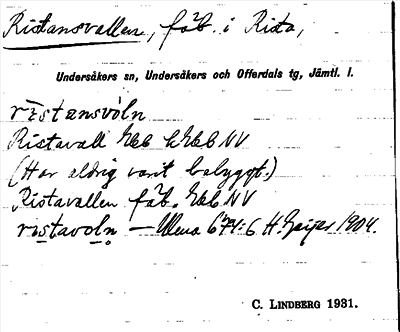 Ristansvallen, fäb. i Rista,
Undersåkers sn, Undersåkers och Offerdals tg, Jämtl. l.
ristansvòln
Ristavall NV
(Har aldrig varit bebyggt.)
Ristavallen fäb. NV
ristavoln — Ulma 674:6 H. Geijer 1904.
C. LINDBERG 1931.